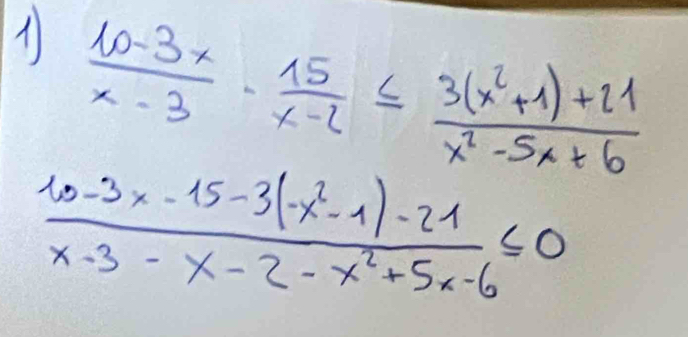 1) (10-3x)/(x-3) - 15/(x-2) ≤ (3(x²+1)+21)/(x²-5x+6)
(10-3x-15-3(-x²-1)-21)/(x-3-x-2-x²+5x-6) ≤ 0